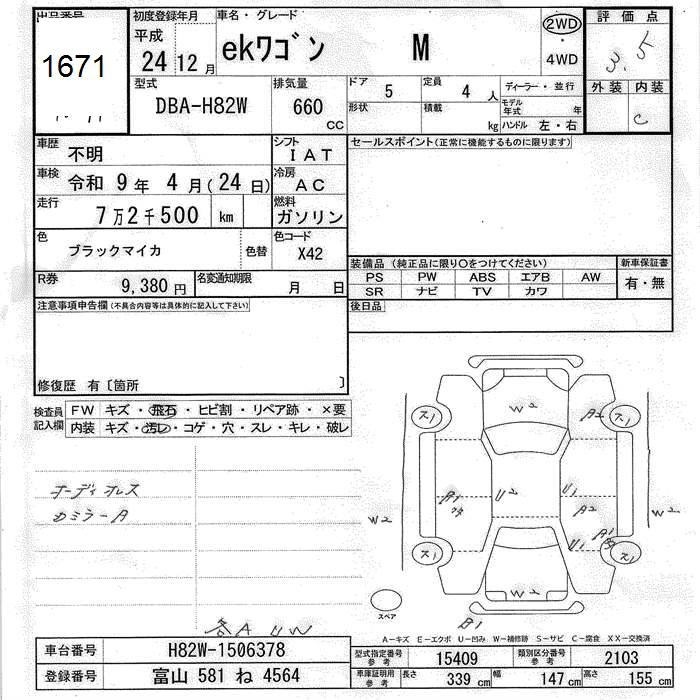 出品番号
1671
初度登録年月
平成
24 12 月
車名・グレード
ekワゴン M
2WD
・
4WD
評価点
3.5
外装 内装
C
型式
DBA-H82W
排気量
660
CC
ドア
5
定員
4 人
形状
積載
kg
ディーラー・並行
モデル年式 年
ハンドル 左・右
車歴
不明
シフト
IAT
車検
令和 9 年 4 月(24 日)
冷房
AC
走行
7万2千500 km
燃料
ガソリン
色
ブラックマイカ
色替
色コード
X42
R券
9,380 円
名変通知期限
月 日
セールスポイント(正常に機能するものに限ります)
装備品(純正品に限り○をつけてください)
新車保証書
PS PW ABS エアB AW
SR ナビ TV カワ
有・無
後日品
注意事項申告欄(不具合内容等は具体的に記入して下さい)
修復歴 有〔箇所 〕
検査員記入欄
FW キズ・飛石・ヒビ割・リペア跡・×要
内装 キズ・汚レ・コゲ・穴・スレ・キレ・破レ
オーディオレス
カミラーA
各A U W
W2
ス1
A2
ス1
A1
U2
U1
A2
W2
W2
A1
U1
ス1
ス1
W2
B1
スペア
A-キズ E-エクボ U-凹み W-補修跡 S-サビ C-腐食 XX-交換済
車台番号
H82W-1506378
登録番号
富山 581 ね 4564
型式指定番号
参考
15409
類別区分番号
参考
2103
車庫証明用
参考
長さ 339 cm
幅 147 cm
高さ 155 cm